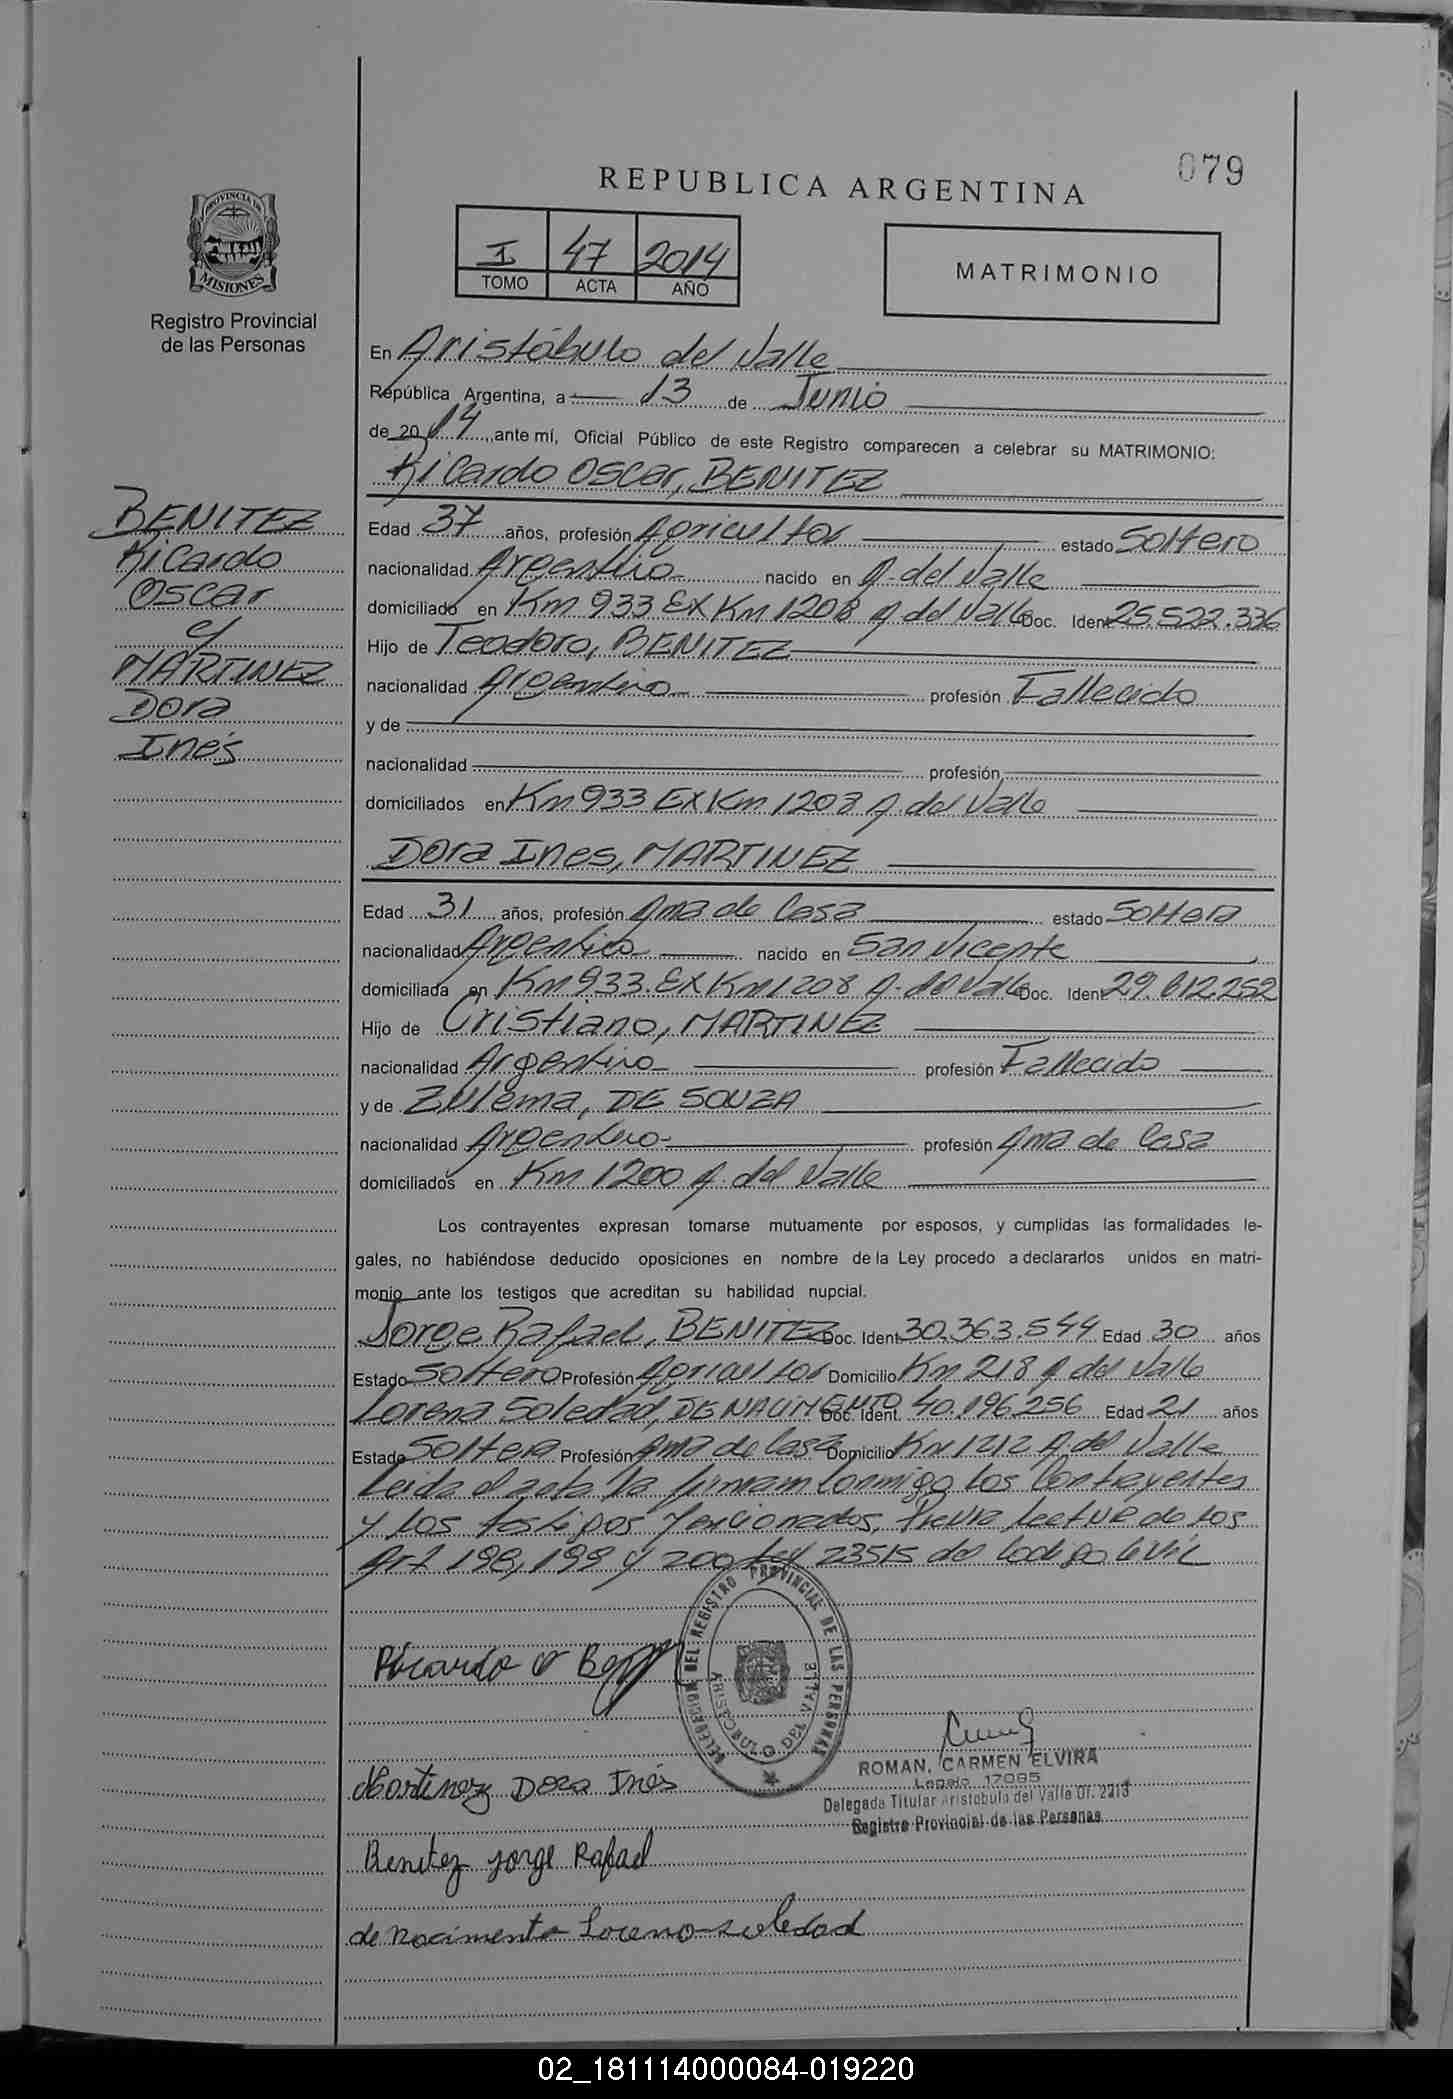 079
REPUBLICA ARGENTINA
I 47 2014
TOMO ACTA AÑO
MATRIMONIO
PROVINCIA DE
MISIONES
Registro Provincial
de las Personas
BENITEZ
Ricardo
Oscar
y
MARTINEZ
Dora
Inés
En Aristóbulo del Valle
República Argentina, a 13 de Junio
de 2014, ante mí, Oficial Público de este Registro comparecen a celebrar su MATRIMONIO:
Ricardo Oscar, BENITEZ
Edad 37 años, profesión Agricultor estado Soltero
nacionalidad Argentino nacido en A. del Valle
domiciliado en Km 933 Ex Km 1208 A del Valle Doc. Ident 25.522.336
Hijo de Teodoro, BENITEZ
nacionalidad Argentino profesión Fallecido
y de
nacionalidad profesión
domiciliados en Km 933 Ex Km 1208 A. del Valle
Dora Ines, MARTINEZ
Edad 31 años, profesión Ama de Casa estado Soltera
nacionalidad Argentina nacido en San Vicente
domiciliada en Km 933 Ex Km 1208 A. del Valle Doc. Ident 29.612.252
Hijo de Cristiano, MARTINEZ
nacionalidad Argentino profesión Fallecido
y de Zulema, DE SOUZA
nacionalidad Argentino profesión Ama de Casa
domiciliados en Km 1200 A. del Valle
Los contrayentes expresan tomarse mutuamente por esposos, y cumplidas las formalidades le-
gales, no habiéndose deducido oposiciones en nombre de la Ley procedo a declararlos unidos en matri-
monio ante los testigos que acreditan su habilidad nupcial.
Jorge Rafael, BENITEZ Doc. Ident 30.363.544 Edad 30 años
Estado Soltero Profesión Agricultor Domicilio Km 218 A del Valle
Lorena Soledad, DE NACIMENTO Doc. Ident. 40.196.256 Edad 21 años
Estado Soltera Profesión Ama de Casa Domicilio Km 1212 A. del Valle
Leida el acta la firman conmigo los Contrayentes
y los testigos mencionados, Previa lectura de los
Art 198, 199 y 200 Ley 23515 del Codigo Civil
DELEGACION DEL REGISTRO PROVINCIAL DE LAS PERSONAS
ARISTOBULO DEL VALLE
Ricardo O
Martinez Dora Inés
ROMAN, CARMEN ELVIRA
Legajo 17085
Delegada Titular Aristobulo del Valle Of. 2213
Registro Provincial de las Personas
Benitez Jorge Rafael
de Nacimento Lorena Soledad
02_181114000084-019220